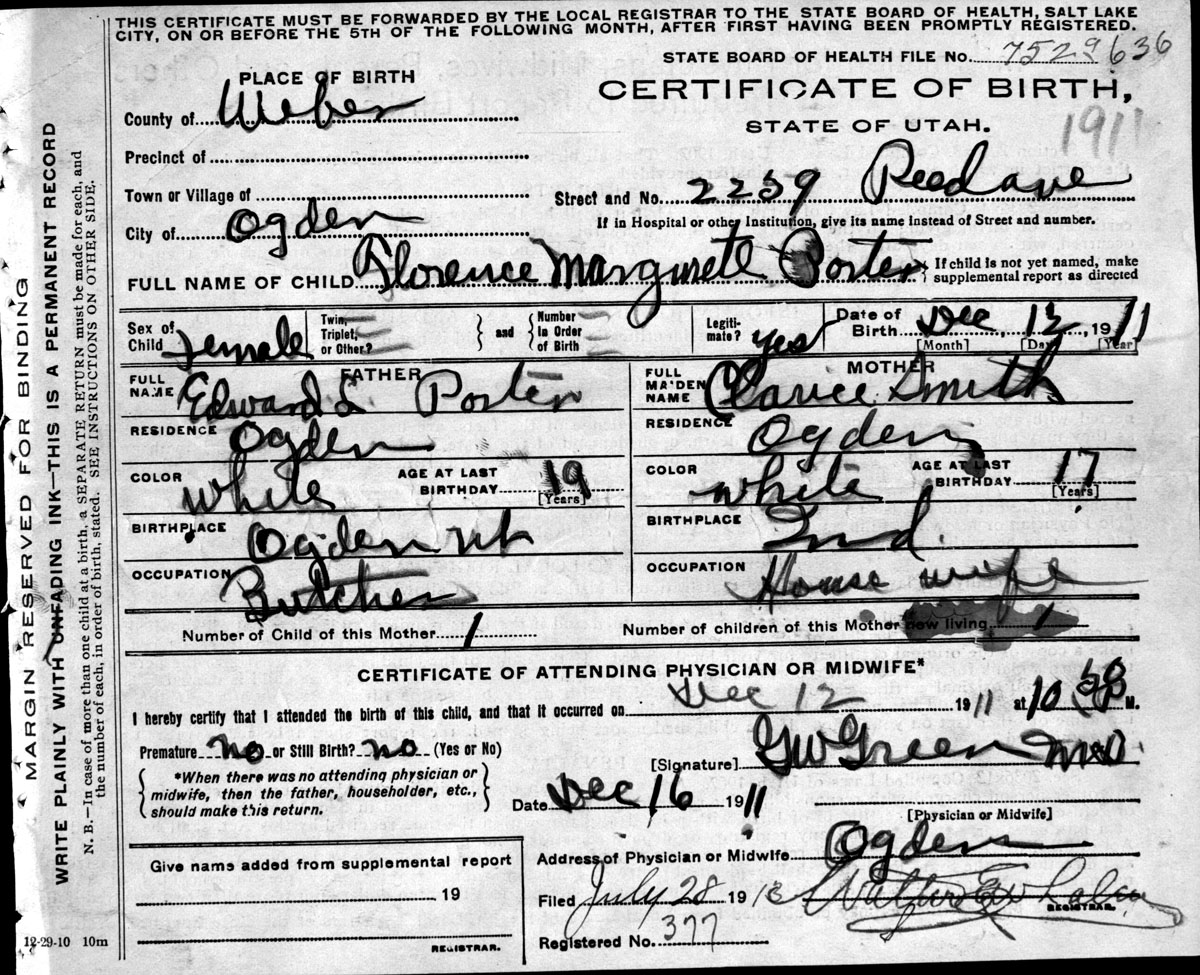 THIS CERTIFICATE MUST BE FORWARDED BY THE LOCAL REGISTRAR TO THE STATE BOARD OF HEALTH, SALT LAKE
CITY, ON OR BEFORE THE 5TH OF THE FOLLOWING MONTH, AFTER FIRST HAVING BEEN PROMPTLY REGISTERED.
STATE BOARD OF HEALTH FILE No. 7529636
PLACE OF BIRTH
CERTIFICATE OF BIRTH,
County of Weber
STATE OF UTAH.
1911
Precinct of
Town or Village of
Street and No. 2239 Reed ave
City of Ogden
If in Hospital or other Institution, give its name instead of Street and number.
FULL NAME OF CHILD Florence Margurete Porter { If child is not yet named, make
supplemental report as directed
Sex of Child Female
Twin, Triplet, or Other?
and
Number in Order of Birth
Legiti-mate? yes
Date of Birth Dec 12, 1911
[Month] [Day] [Year]
FATHER
FULL NAME Edward L Porter
RESIDENCE Ogden
COLOR White
AGE AT LAST BIRTHDAY 19
[Years]
BIRTHPLACE Ogden Ut
OCCUPATION Butcher
MOTHER
FULL MAIDEN NAME Clarice Smith
RESIDENCE Ogden
COLOR White
AGE AT LAST BIRTHDAY 17
[Years]
BIRTHPLACE Ind.
OCCUPATION House wife
Number of Child of this Mother 1
Number of children of this Mother now living 1
CERTIFICATE OF ATTENDING PHYSICIAN OR MIDWIFE*
I hereby certify that I attended the birth of this child, and that it occurred on Dec 12 1911 at 10 M.
Premature no or Still Birth? no (Yes or No)
[Signature] GW Green MD
*When there was no attending physician or
midwife, then the father, householder, etc.,
should make this return.
Date Dec 16 1911
[Physician or Midwife]
Give name added from supplemental report
19
REGISTRAR.
Address of Physician or Midwife Ogden
Filed July 28 1913 Walter E Whalen
REGISTRAR.
Registered No. 377
12-29-10 10m
MARGIN RESERVED FOR BINDING
WRITE PLAINLY WITH UNFADING INK—THIS IS A PERMANENT RECORD
N. B.—In case of more than one child at a birth, a SEPARATE RETURN must be made for each, and
the number of each, in order of birth, stated. SEE INSTRUCTIONS ON OTHER SIDE.